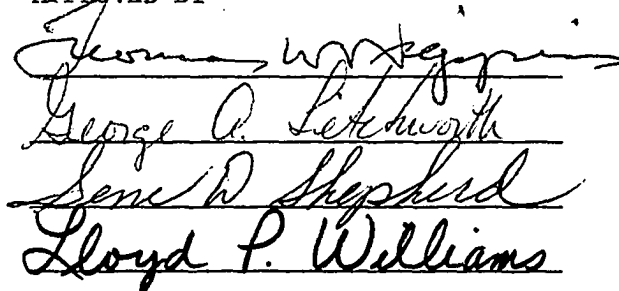 APPROVED BY
Thomas W. Wiggins
George A. Letchworth
Gene D Shepherd
Lloyd P. Williams